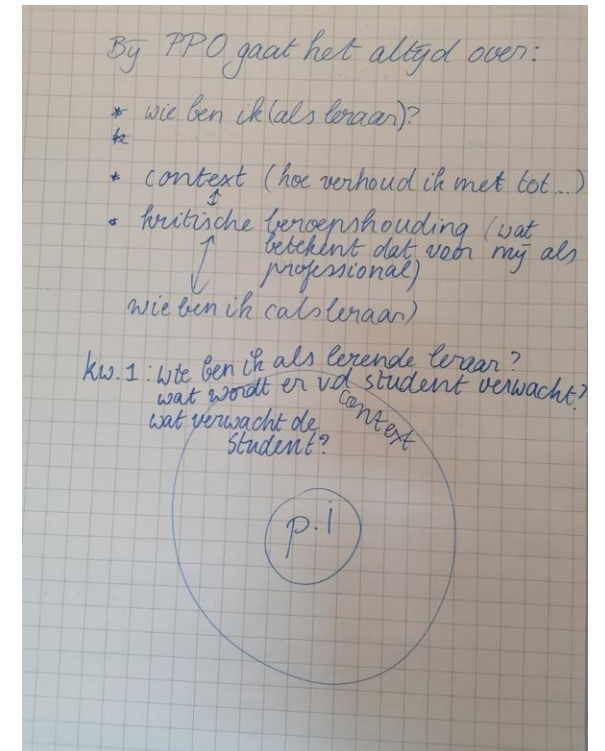 Bij PPO gaat het altijd over:
* wie ben ik (als leraar)?
*
* context (hoe verhoud ik met tot...)
• kritische beroepshouding (wat
betekent dat voor mij als
professional)
wie ben ik (als leraar)
kw. 1: wie ben ik als lerende leraar?
wat wordt er vd student verwacht?
wat verwacht de
student?
context
p.i